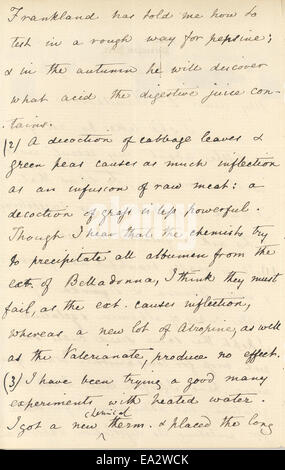 Frankland has told me how to
test in a rough way for pepsine;
& in the autumn he will discover
what acid the digestive juice con-
tains.
(2) A decoction of cabbage leaves &
green peas causes as much inflection
as an infusion of raw meat: a
decoction of grass is less powerful.
Though I hear that the chemists try
to precipitate all albumen from the
ext. of Belladonna, I think they must
fail, as the ext. causes inflection,
whereas a new lot of Atropine, as well
as the Valerianate, produce no effect.
(3) I have been trying a good many
experiments with heated water.
chemical
I got a new therm. & placed the long
alamy
alamy
E A2WCK